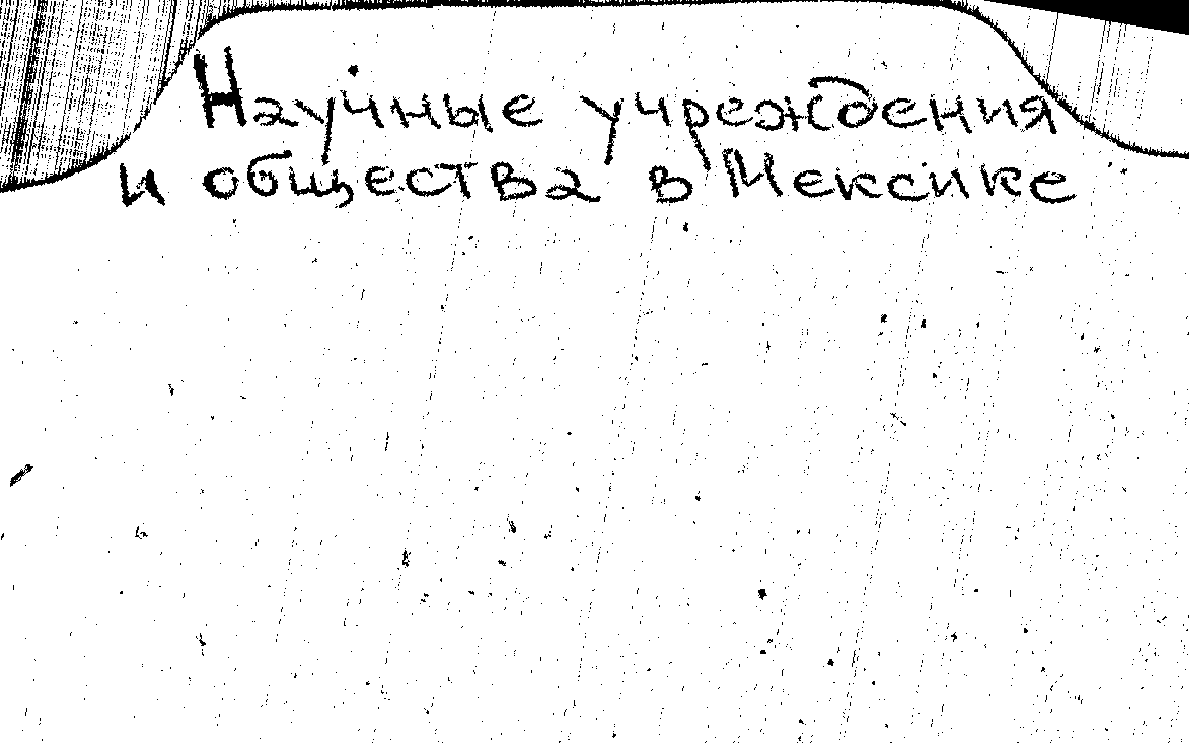 Научные учреждения
и общества в Мексике